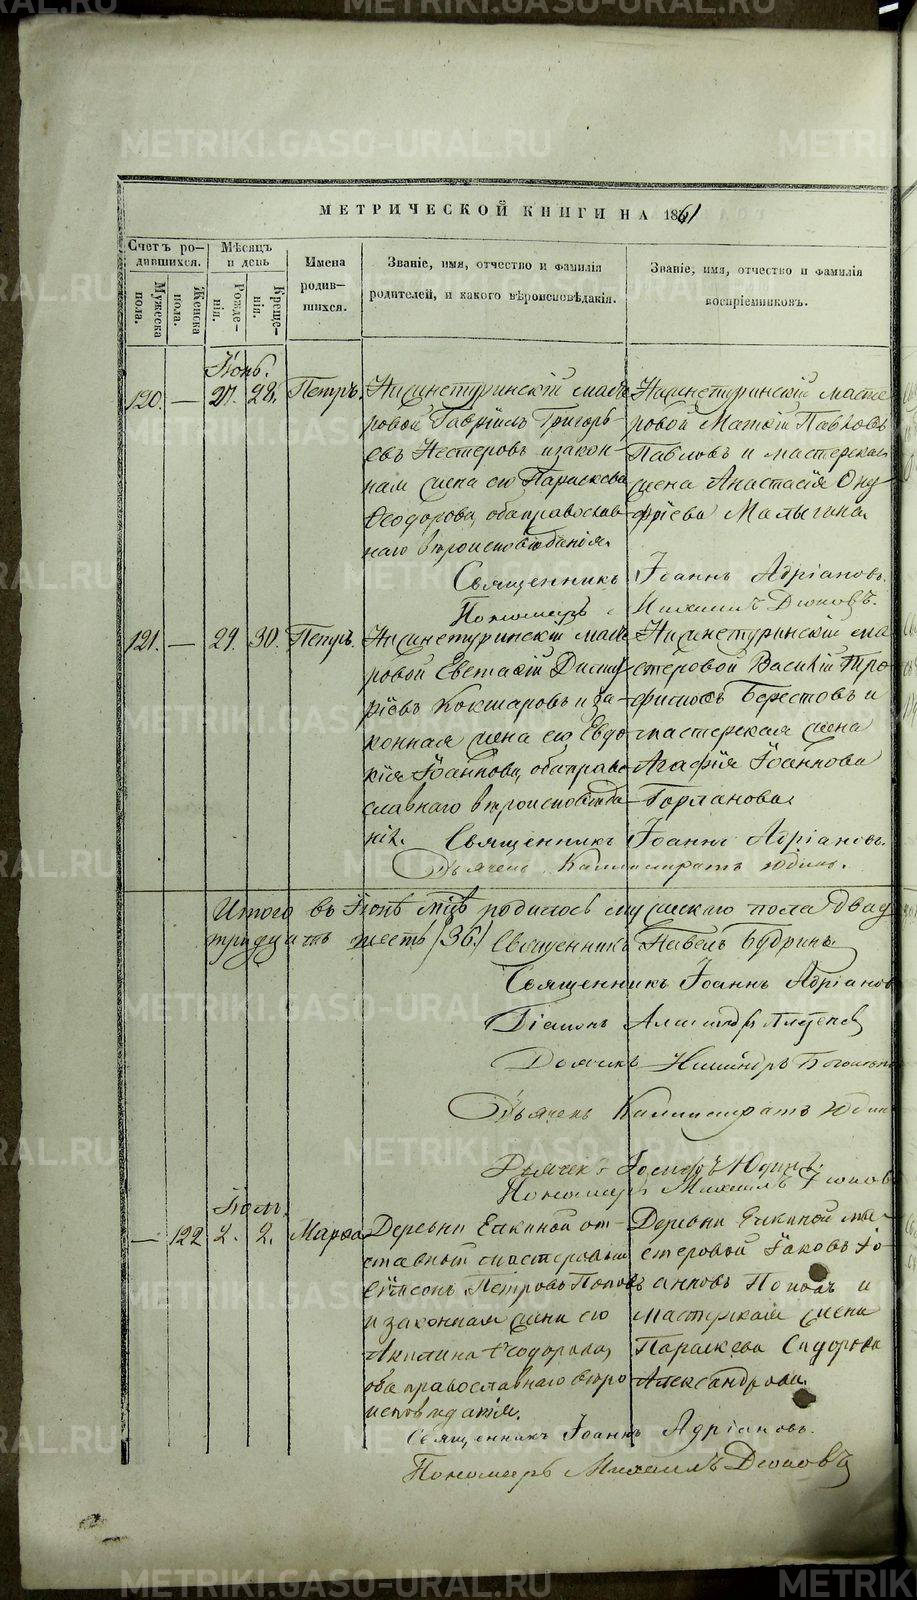 МЕТРИЧЕСКОЙ КНИГИ НА 1861
Счетъ ро-
дившихся.
Мужеска
пола.
Женска
пола.
Мѣсяцъ
и день
Рожде-
нія.
Креще-
нія.
Имена
родив-
шихся.
Званіе, имя, отчество и фамилія
родителей, и какого вѣроисповѣданія.
Званіе, имя, отчество и фамилія
воспріемниковъ.
Іюнь.
120. — 27. 28. Петръ.
Нижнетуринскій масте-
ровой Гавріилъ Григорь-
евъ Нестеровъ и закон-
ная жена его Параскева
Ѳеодорова, оба православ-
наго вѣроисповѣданія.
Нижнетуринскій масте-
ровой
Павловъ и мастерская
жена Анастасія Ону-
фріева Малыгина.
Священникъ Іоаннъ Адріановъ.
Пономарь Михаилъ
121. — 29. 30. Петръ.
Нижнетуринскій масте-
ровой Евстафій Димит-
ріевъ Кокшаровъ и за-
конная жена его Евдо-
кія Іоаннова, оба право-
славнаго вѣроисповѣда-
нія.
Нижнетуринскій ма-
стеровой Василій Тро-
фимовъ Берестовъ и
мастерская жена
Агафія Іоаннова
Священникъ Іоаннъ Адріановъ.
Дьячекъ Каллистратъ Юдинъ.
Итого въ Іюнѣ мцѣ родилось мужескаго пола двад
тридцать шесть /36/ Священникъ Павелъ Будринъ
Священникъ Іоаннъ Адріановъ
Діаконъ
Дьячекъ
Дьячекъ Каллистратъ Юдинъ
Дьячекъ Юдинъ.
Пономарь Михаилъ
Іюль.
— 122 2. 2. Марѳа
Деревни Елкиной от-
ставный мастеровый
Петровъ Поповъ
и законная жена его
Акилина Ѳеодорова,
оба православнаго вѣро-
исповѣданія.
Деревни Елкиной ма-
стеровой Іаковъ Іо-
анновъ Поповъ и
мастерская жена
Параскева Сидорова
Александрова.
Священникъ Іоаннъ Адріановъ.
Пономарь Михаилъ
METRIKI.GASO-URAL.RU